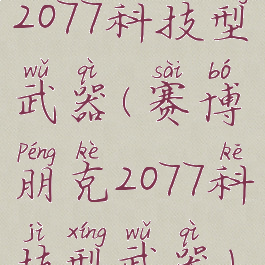 2077科技型
wǔ qì sài bó
武器(赛博
Péng kè kē
朋克2077科
jì xíng wǔ qì
技型武器)